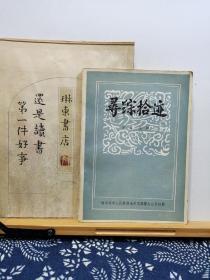 琳東書店
還是讀書
第一件好事
尋踪拾迹